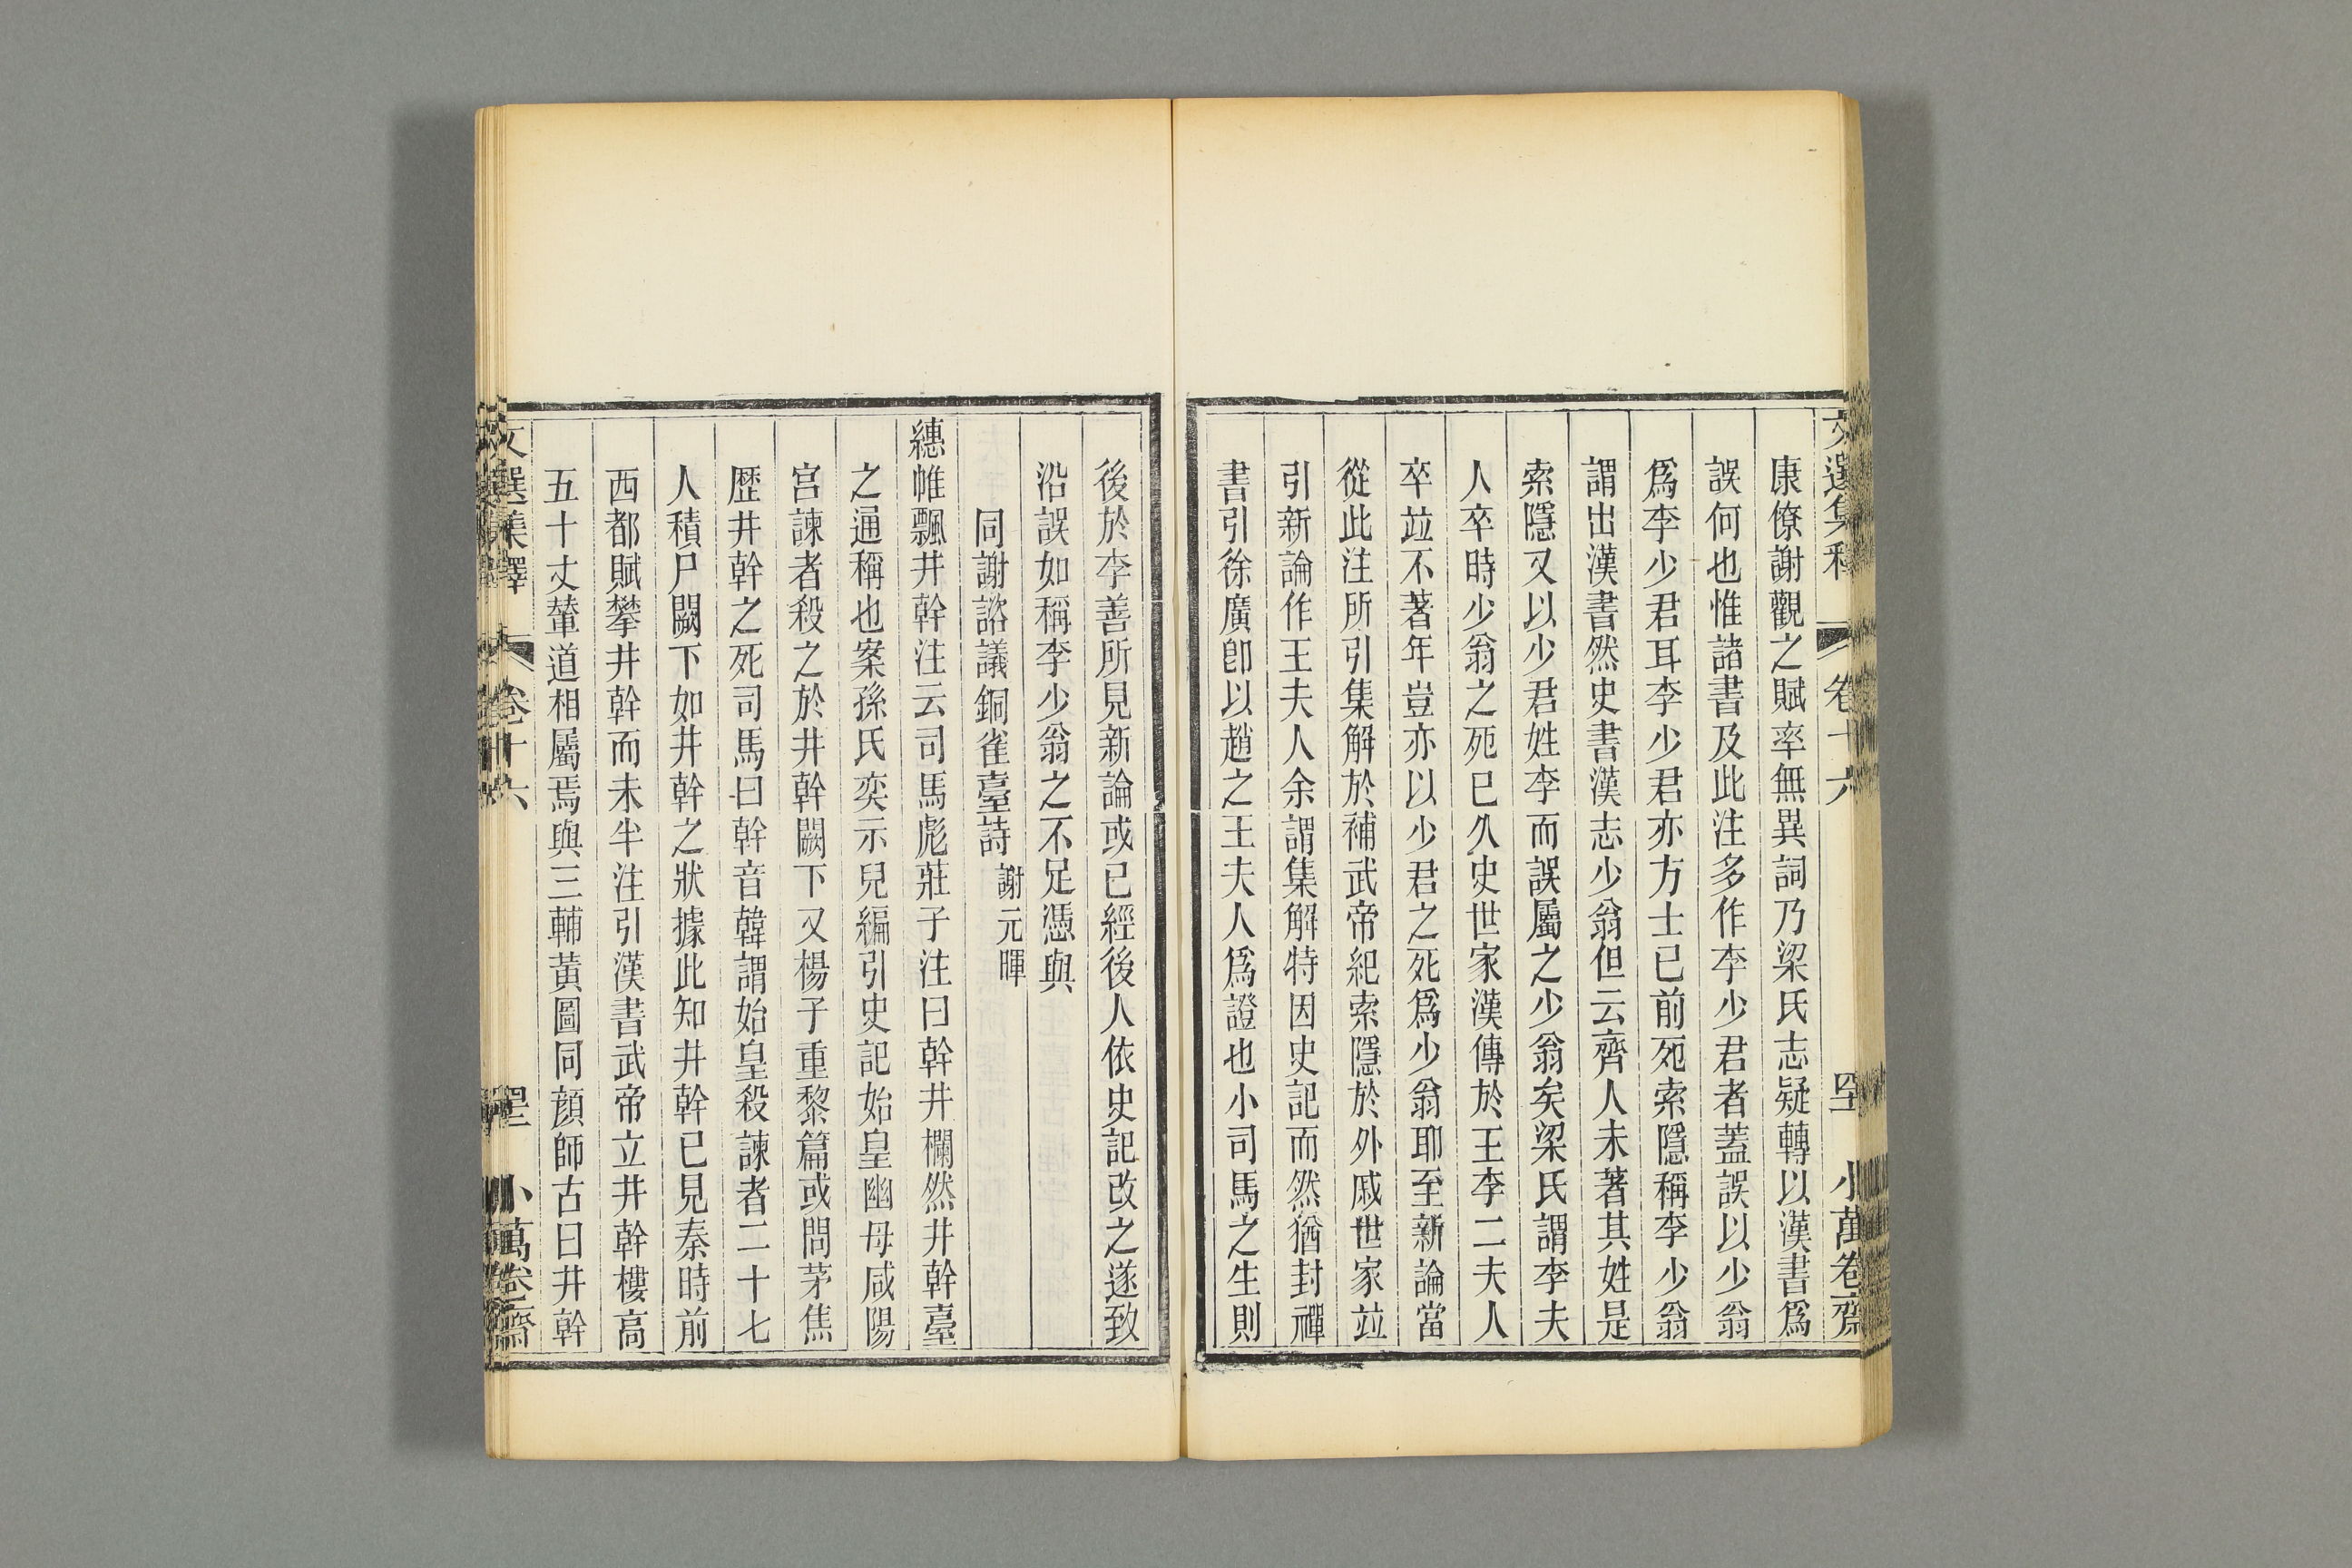 文選集釋 卷十六 小萬卷齋
康僚謝觀之賦率無異詞乃梁氏志疑轉以漢書爲
誤何也惟諸書及此注多作李少君者蓋誤以少翁
爲李少君耳李少君亦方士已前死索隱稱李少翁
謂出漢書然史書漢志少翁但云齊人未著其姓是
索隱又以少君姓李而誤屬之少翁矣梁氏謂李夫
人卒時少翁之死已久史世家漢傳於王李二夫人
卒竝不著年豈亦以少君之死爲少翁耶至新論當
從此注所引集解於補武帝紀索隱於外戚世家竝
引新論作王夫人余謂集解特因史記而然猶封禪
書引徐廣卽以趙之王夫人爲證也小司馬之生則
後於李善所見新論或已經後人依史記改之遂致
沿誤如稱李少翁之不足憑與
同謝諮議銅雀臺詩 謝元暉
繐帷飄井幹注云司馬彪莊子注曰幹井欄然井幹臺
之通稱也案孫氏奕示兒編引史記始皇幽母咸陽
宮諫者殺之於井幹闕下又楊子重黎篇或問茅焦
歷井幹之死司馬曰幹音韓謂始皇殺諫者二十七
人積尸闕下如井幹之狀據此知井幹已見秦時前
西都賦攀井幹而未半注引漢書武帝立井幹樓高
五十丈輦道相屬焉與三輔黃圖同顏師古曰井幹
文選集釋 卷十六 小萬卷齋